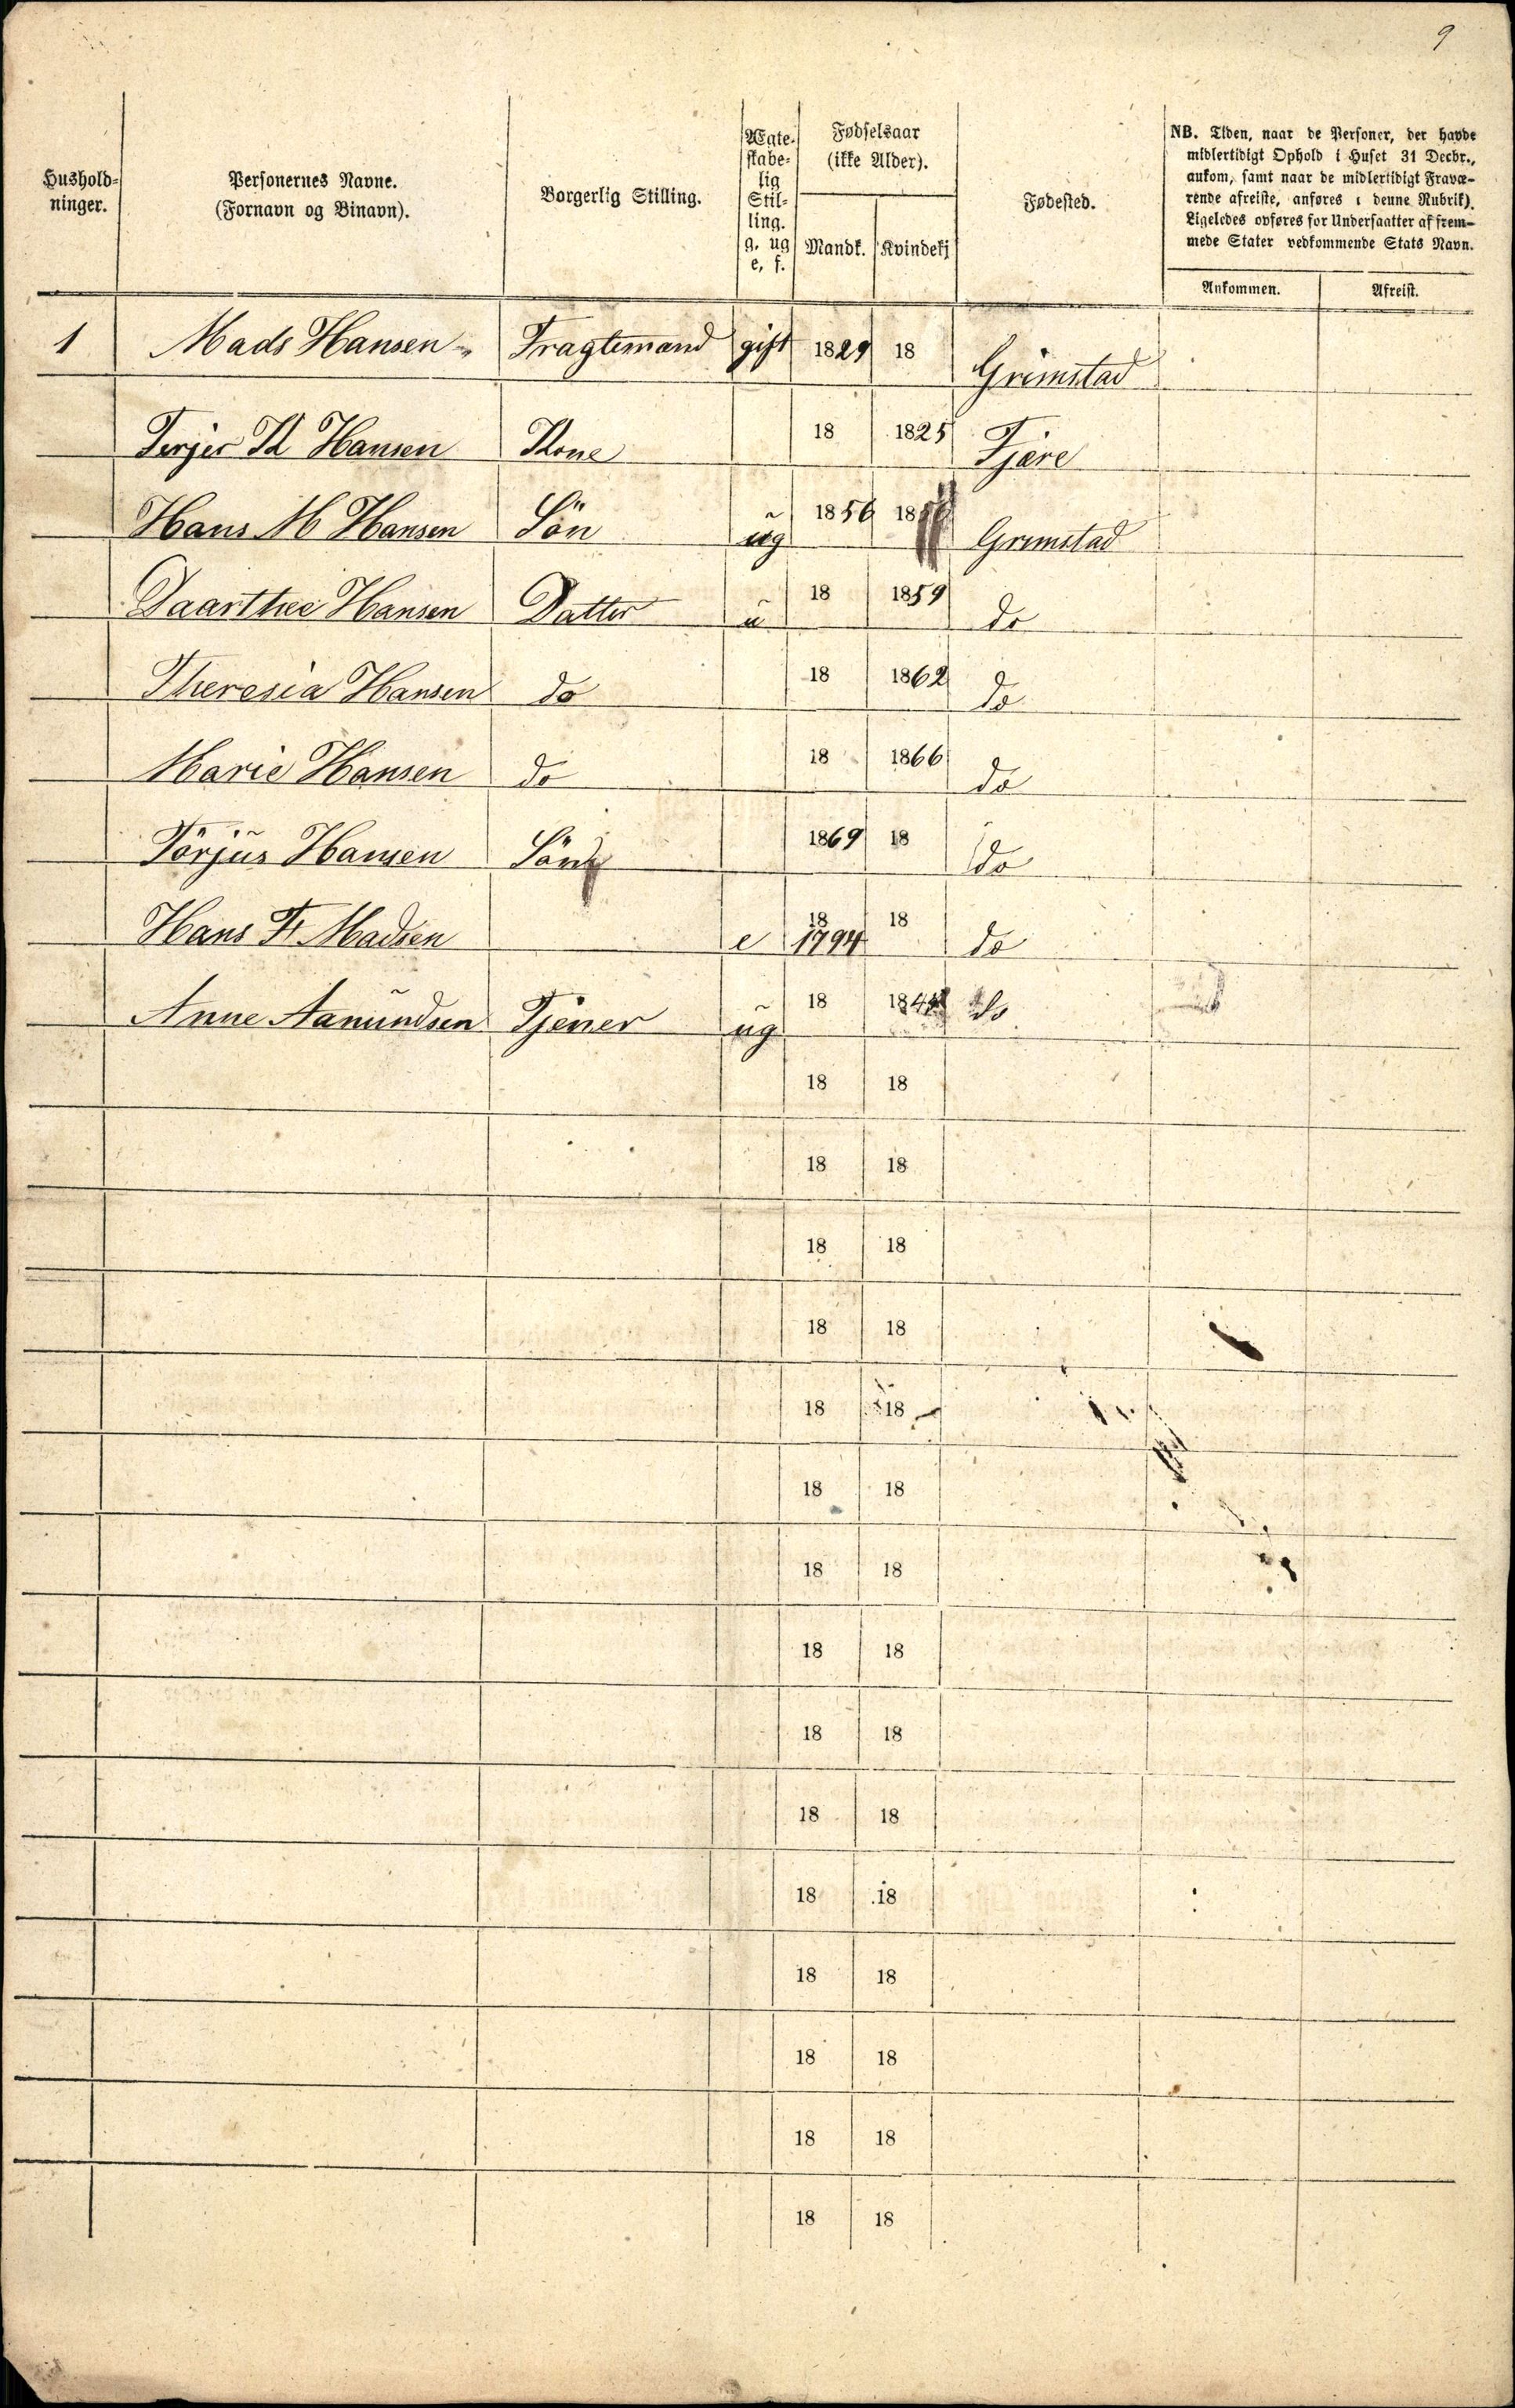 9
Hushold-
ninger.
Personernes Navne.
(Fornavn og Binavn).
Borgerlig Stilling.
Ægte-
skabe-
lig
Stil-
ling.
g. ug
e, f.
Fødselsaar
(ikke Alder).
Mandk. Kvindekj
Fødested.
NB. Tiden, naar de Personer, der havde
midlertidigt Ophold i Huset 31 Decbr.,
ankom, samt naar de midlertidigt Fravæ-
rende afreiste, anføres i denne Rubrik).
Ligeledes opføres for Undersaatter af frem-
mede Stater vedkommende Stats Navn.
Ankommen. Afreist.
1 Mads Hansen Fragtemand gift 1829 18 Grimstad
Hansen Kone 18 1825 Fjære
Hans M Hansen Sön ug 1856 18 Grimstad
Daarthee Hansen Datter u 18 1859 do
Theresia Hansen do 18 1862 do
Marie Hansen do 18 1866 do
Törjus Hansen Sön 1869 18 do
Hans Madsen e 18 1794 18 do
Anne Aanundsen Tjener ug 18 do
18 18
18 18
18 18
18 18
18 18
18 18
18 18
18 18
18 18
18 18
18 18
18 18
18 18
18 18
18 18